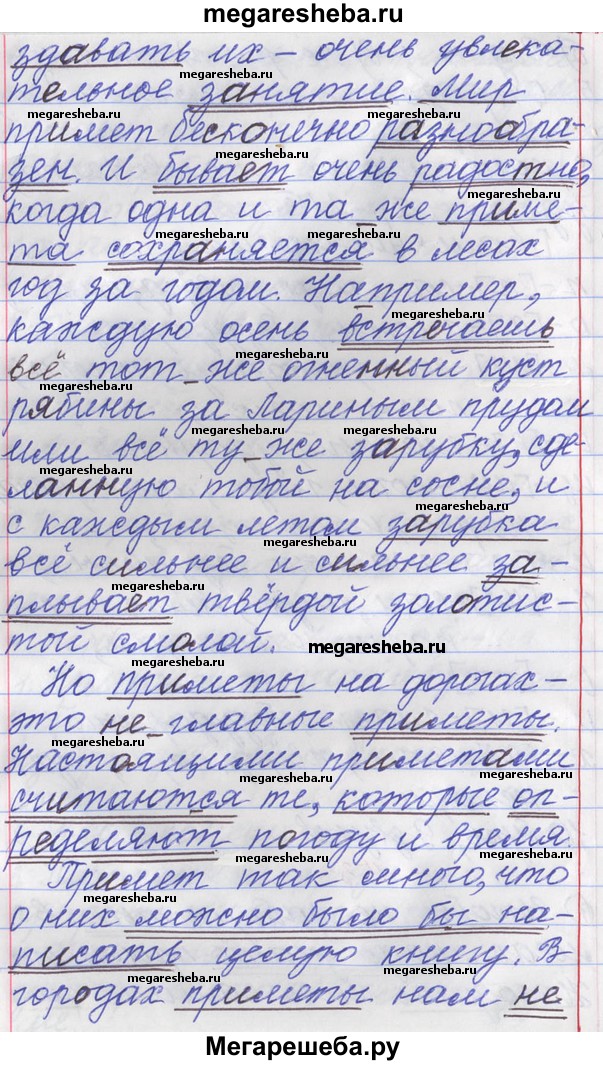 megaresheba.ru
здавать их – очень увлека-
megaresheba.ru
тельное занятие. Мир
megaresheba.ru
megaresheba.ru
примет бесконечно разнообра-
megaresheba.ru
зен. И бывает очень радостно,
megaresheba.ru
когда одна и та же приме-
megaresheba.ru
та сохраняется в лесах
megaresheba.ru
год за годом. Например,
megaresheba.ru
каждую осень встречаешь
megaresheba.ru
всё тот же огненный куст
megaresheba.ru
рябины за Лариным прудом
megaresheba.ru
или всё ту же зарубку, сде-
megaresheba.ru
ланную тобой на сосне, и
megaresheba.ru
с каждым летом зарубка
megaresheba.ru
всё сильнее и сильнее за-
megaresheba.ru
плывает твёрдой золотис-
той смолой.
megaresheba.ru
megaresheba.ru
Но приметы на дорогах –
megaresheba.ru
это не главные приметы.
megaresheba.ru
Настоящими приметами
megaresheba.ru
считаются те, которые оп-
megaresheba.ru
ределяют погоду и время.
megaresheba.ru
Примет так много, что
megaresheba.ru
о них можно было бы на-
megaresheba.ru
писать целую книгу. В
megaresheba.ru
городах приметы нам не
megaresheba.ru
Мегарешеба.ру